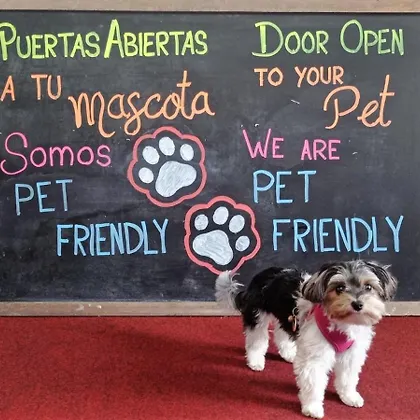 Puertas Abiertas
A tu
Mascota
Somos
PET
FRIENDLY
Door Open
to your
Pet
We are
PET
FRIENDLY